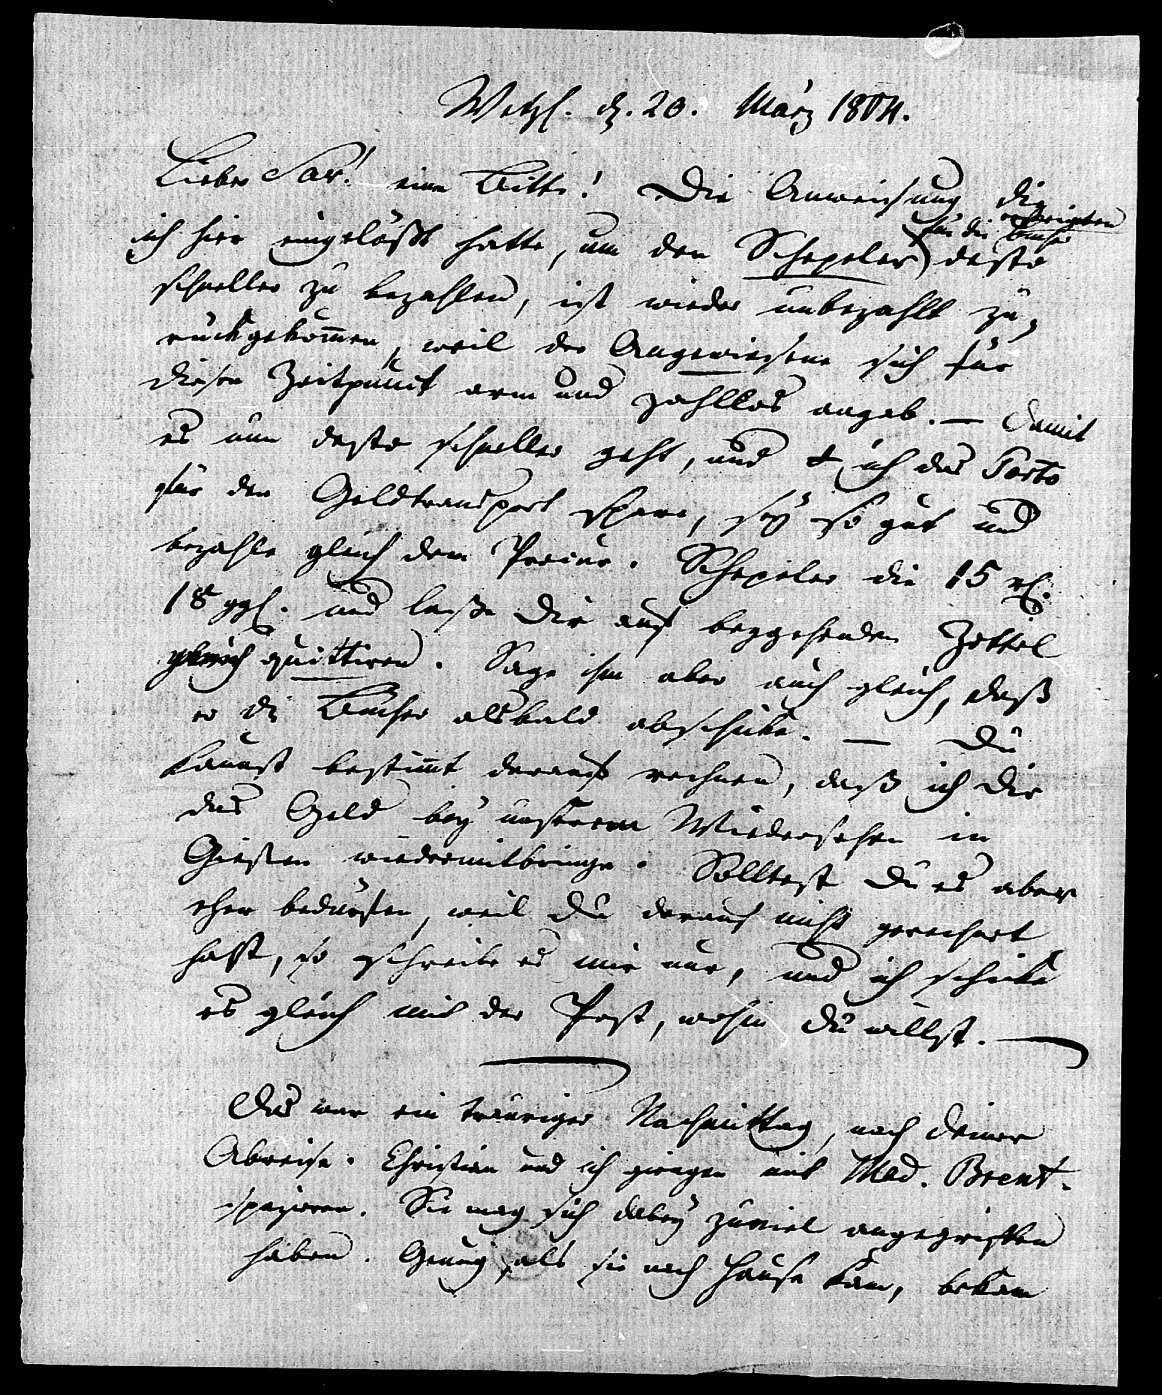 Wetzl. d. 20. März 1804.
Lieber Sav! eine Bitte! Die Anweisung die
ich hier eingelößt hatte, um den Schepeler desto
für die Bücher
schneller zu bezahlen, ist wieder unbezahlt zu,
rückgekommen, weil der Angewiesene sich für
diesen Zeitpunct arm und zahllos angab. — Damit
es nun desto schneller geht, und ich das Porto
für den Geldtransport spare, sey so gut und
bezahle gleich dem Schepeler die 15 rh.
18 ggl. und laße Dir auf beygehenden Zettel
gleich quittiren. Sage ihm aber auch gleich, daß
er die Bücher alsbald abschicke. — Du
kannst bestimmt darauf rechnen, daß ich Dir
das Geld bey unserem Wiedersehen in
Giessen wiedermitbringe. Solltest Du es aber
eher bedürfen, weil Du darauf nicht gerechnet
hast, so schreibe es mir nur, und ich schicke
es gleich mit der Post, wohin Du willst. —
Das war ein trauriger Nachmittag, nach deiner
Abreise. Christian und ich giengen mit Mad. Brent.
spazieren. Sie mag sich dabey zuviel angegriffen
haben. Genug, als sie nach Hause kam, bekam